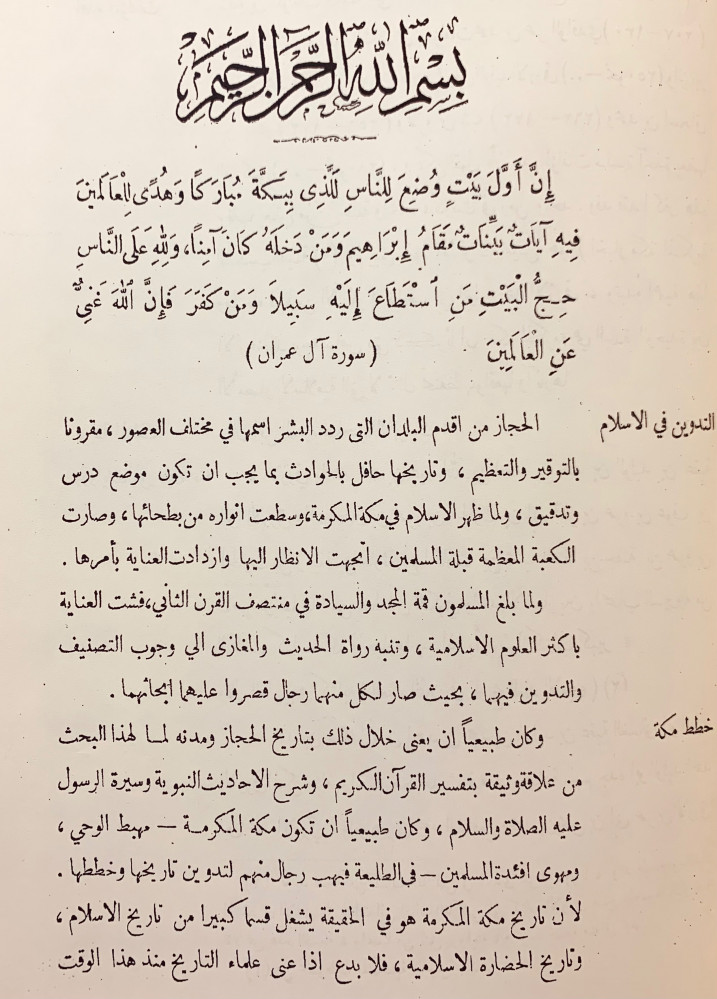 بِسْمِ اللهِ الرَّحْمَنِ الرَّحِيمِ
إِنَّ أَوَّلَ بَيْتٍ وُضِعَ لِلنَّاسِ لَلَّذِى بِبَكَّةَ مُبَارَكًا وَهُدًى لِلْعَالَمِينَ
فِيهِ آيَاتٌ بَيِّنَاتٌ مَقَامُ إِبْرَاهِيمَ وَمَنْ دَخَلَهُ كَانَ آمِنًا، وَلِلّٰهِ عَلَى النَّاسِ
حِجُّ الْبَيْتِ مَنِ ٱسْتَطَاعَ إِلَيْهِ سَبِيلاً وَمَنْ كَفَرَ فَإِنَّ اللهَ غَنِيٌّ
عَنِ الْعَالَمِينَ (سورة آل عمران)
التدوين في الاسلام
الحجاز من اقدم البلدان التى ردد البشر اسمها في مختلف العصور ، مقرونا
بالتوقير والتعظيم ، وتاريخها حافل بالحوادث بما يجب ان تكون موضع درس
وتدقيق ، ولما ظهر الاسلام في مكة المكرمة، وسطعت انواره من بطحائها ، وصارت
الكعبة المعظمة قبلة المسلمين ، اتجهت الانظار اليها وازدادت العناية بأمرها .
ولما بلغ المسلمون قمة المجد والسيادة في منتصف القرن الثاني، فشت العناية
باكثر العلوم الاسلامية ، وتنبه رواة الحديث والمغازى الي وجوب التصنيف
والتدوين فيهما ، بحيث صار لكل منهما رجال قصروا عليهما ابحاثهما .
خطط مكة
وكان طبيعياً ان يعنى خلال ذلك بتاريخ الحجاز ومدنه لما لهذا البحث
من علاقة وثيقة بتفسير القرآن الكريم ، وشرح الاحاديث النبوية وسيرة الرسول
عليه الصلاة والسلام ، وكان طبيعياً ان تكون مكة المكرمة — مهبط الوحي ،
ومهوى افئدة المسلمين — في الطليعة فيهب رجال منهم لتدوين تاريخها وخططها .
لأن تاريخ مكة المكرمة هو في الحقيقة يشغل قسما كبيرا من تاريخ الاسلام ،
وتاريخ الحضارة الاسلامية ، فلا بدع اذا عنى علماء التاريخ منذ هذا الوقت